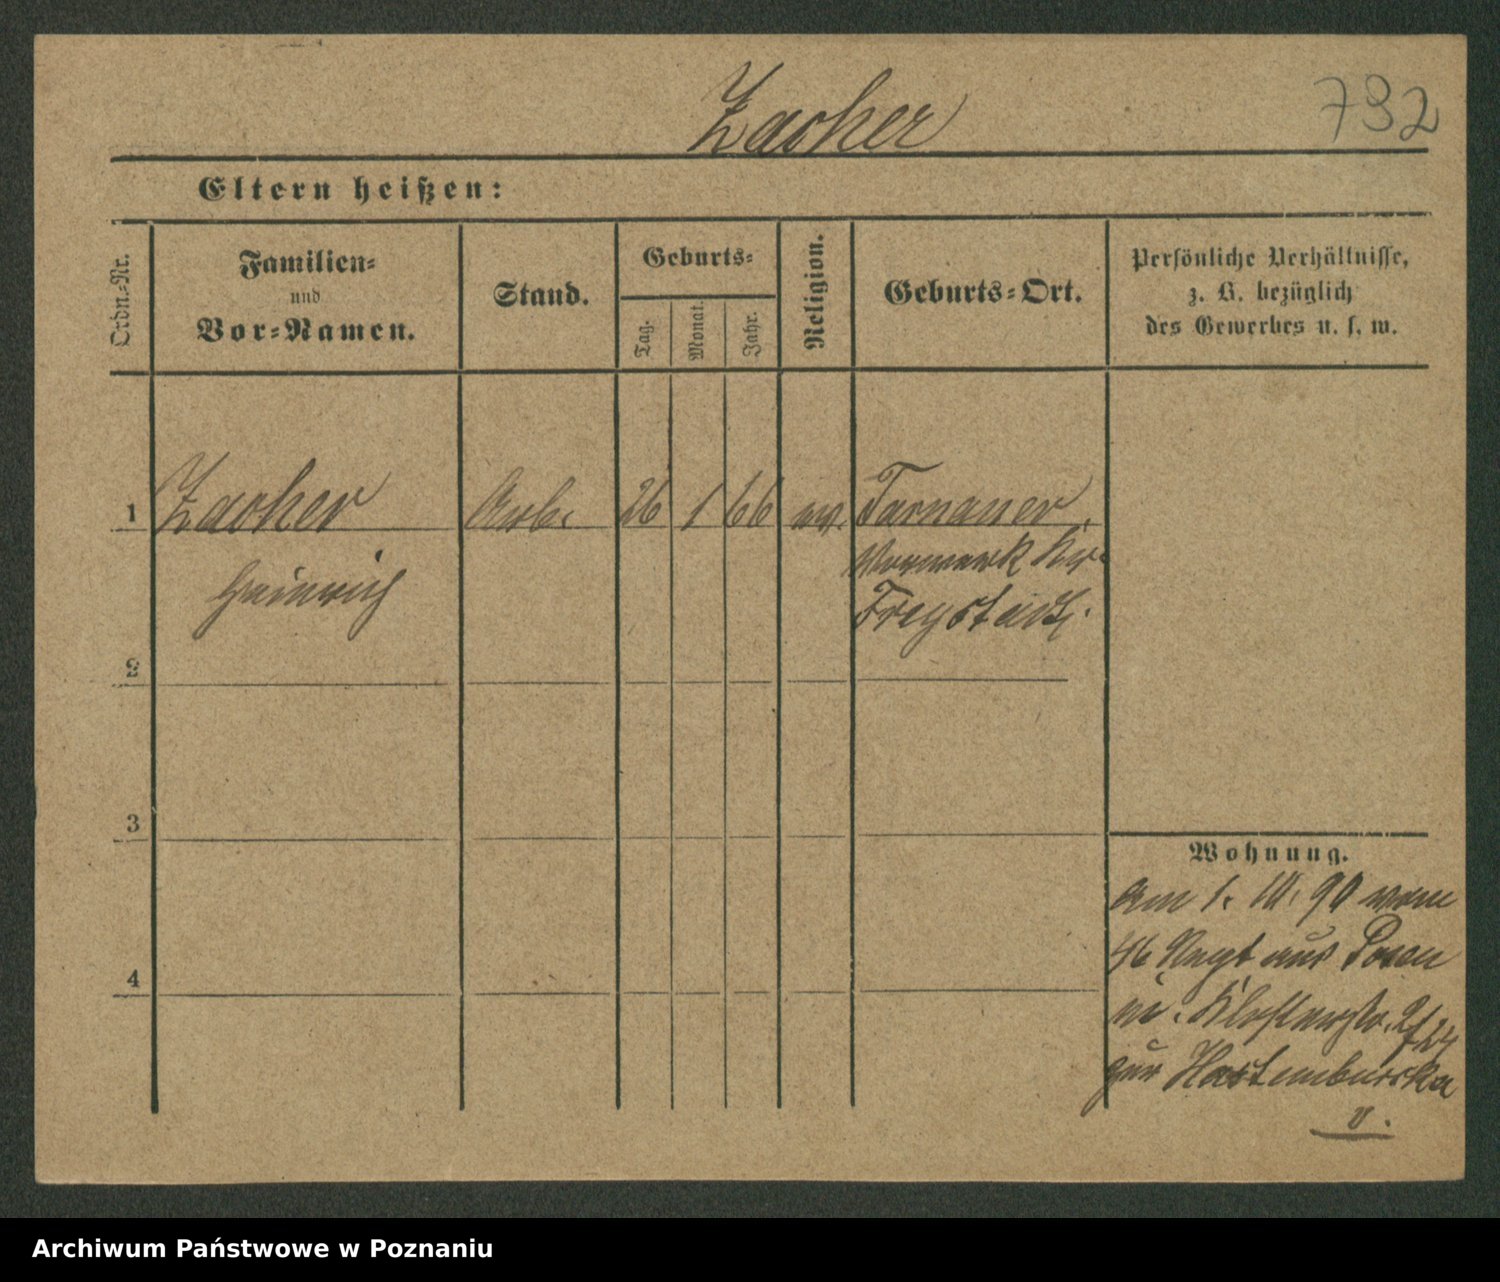 Zacher
732
Eltern heißen:
Ordn.-Nr.
Familien-
und
Vor-Namen.
Stand.
Geburts-
Tag.
Monat.
Jahr.
Religion.
Geburts-Ort.
Persönliche Verhältnisse,
z. B. bezüglich
des Gewerbes u. s. w.
1 Zacher Arb. 26 1 66 ev. Tarnauer
Heinrich Vorwerk Kr.
Freystadt.
2
3
4
Wohnung.
Am 1. 10. 90 vom
46 Regt aus Posen
in. Klosterstr.
zur
v.
Archiwum Państwowe w Poznaniu